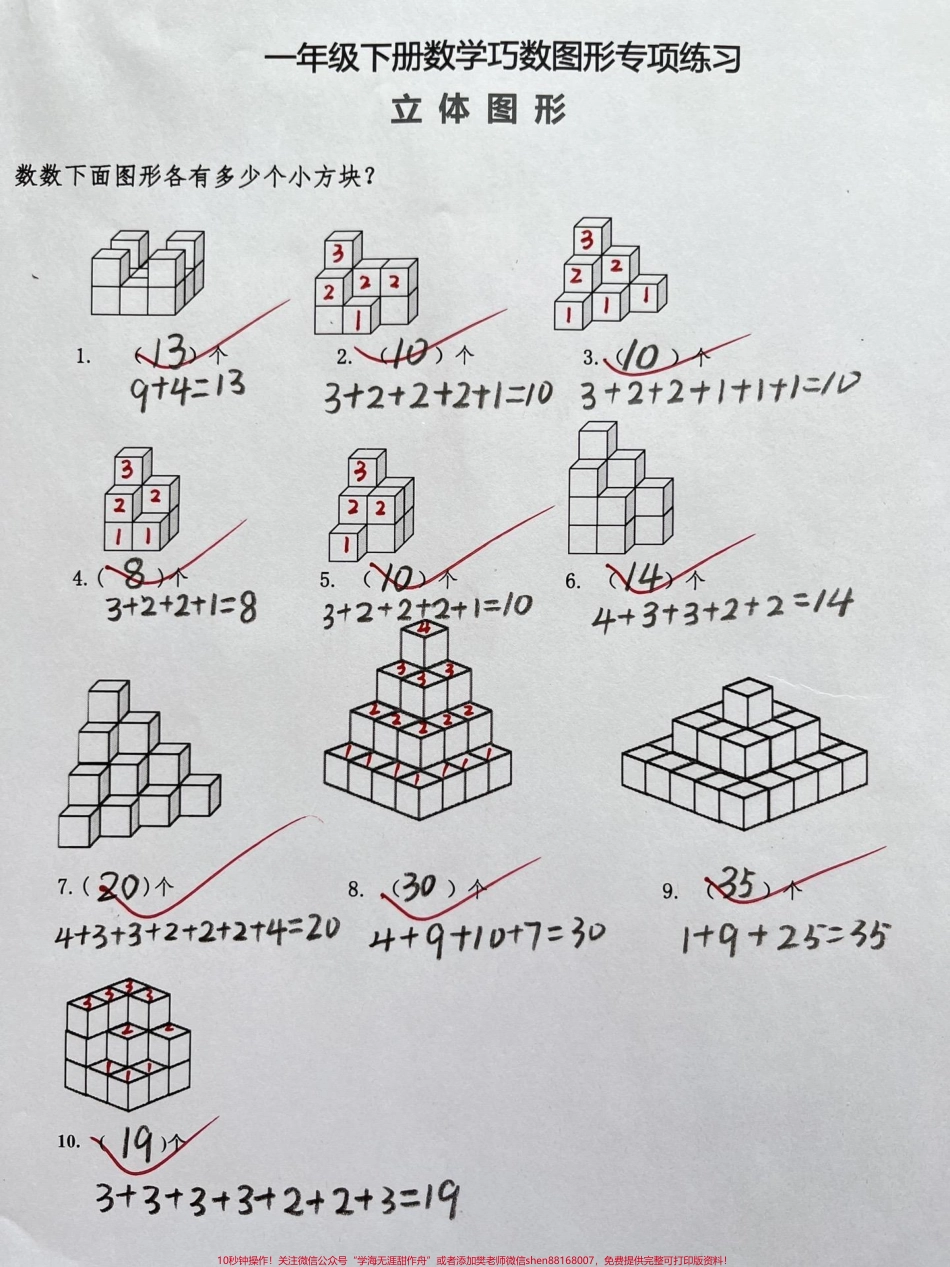 一年级下册数学巧数图形专项练习
立体图形
数数下面图形各有多少个小方块？
3
2 2 2
1
3
2 2
1 1 1
1. （13）个
2. （10）个
3.（10）个
9+4=13
3+2+2+2+1=10
3+2+2+1+1+1=10
3
2 2
1 1
3
2 2
1
4.（8）个
5. （10）个
6. （14）个
3+2+2+1=8
3+2+2+2+1=10
4+3+3+2+2=14
4
3 3 3
2 2 2 2 2
1 1 1 1 1 1 1
7.（20）个
8. （30）个
9. （35）个
4+3+3+2+2+2+4=20
4+9+10+7=30
1+9+25=35
3 3 3 3
2 2
1 1 1
10. （19）个
3+3+3+3+2+2+3=19
10秒钟操作！关注微信公众号“学海无涯甜作舟”或者添加樊老师微信shen88168007，免费提供完整可打印版资料！